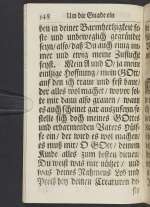 148 Um die Gnade ein
bey in deiner Barmherzigkeit fe-
ste und unbeweglich gegründet
seyn/ also/ daß Du auch einig im-
mer und ewig meine Zuflucht
seyst. Mein A und O/ ja meine
einzige Hoffnung/ mein GOtt/
auf den ich traue und fest baue/
der alles wol machet/ wovor sol-
te mir dann also grauen/ wann
es auch scheinet gar auszusehen/
stelle sich doch meines GOttes
und erbarmenden Vaters Hülf-
fe ein/ der wird es wol machen/
es muß mir/ O GOtt/ deinem
Kinde alles zum besten dienen.
Du weist was mir nützet/ und
was deines Nahmens Lob und
Preiß bey deinen Creaturen